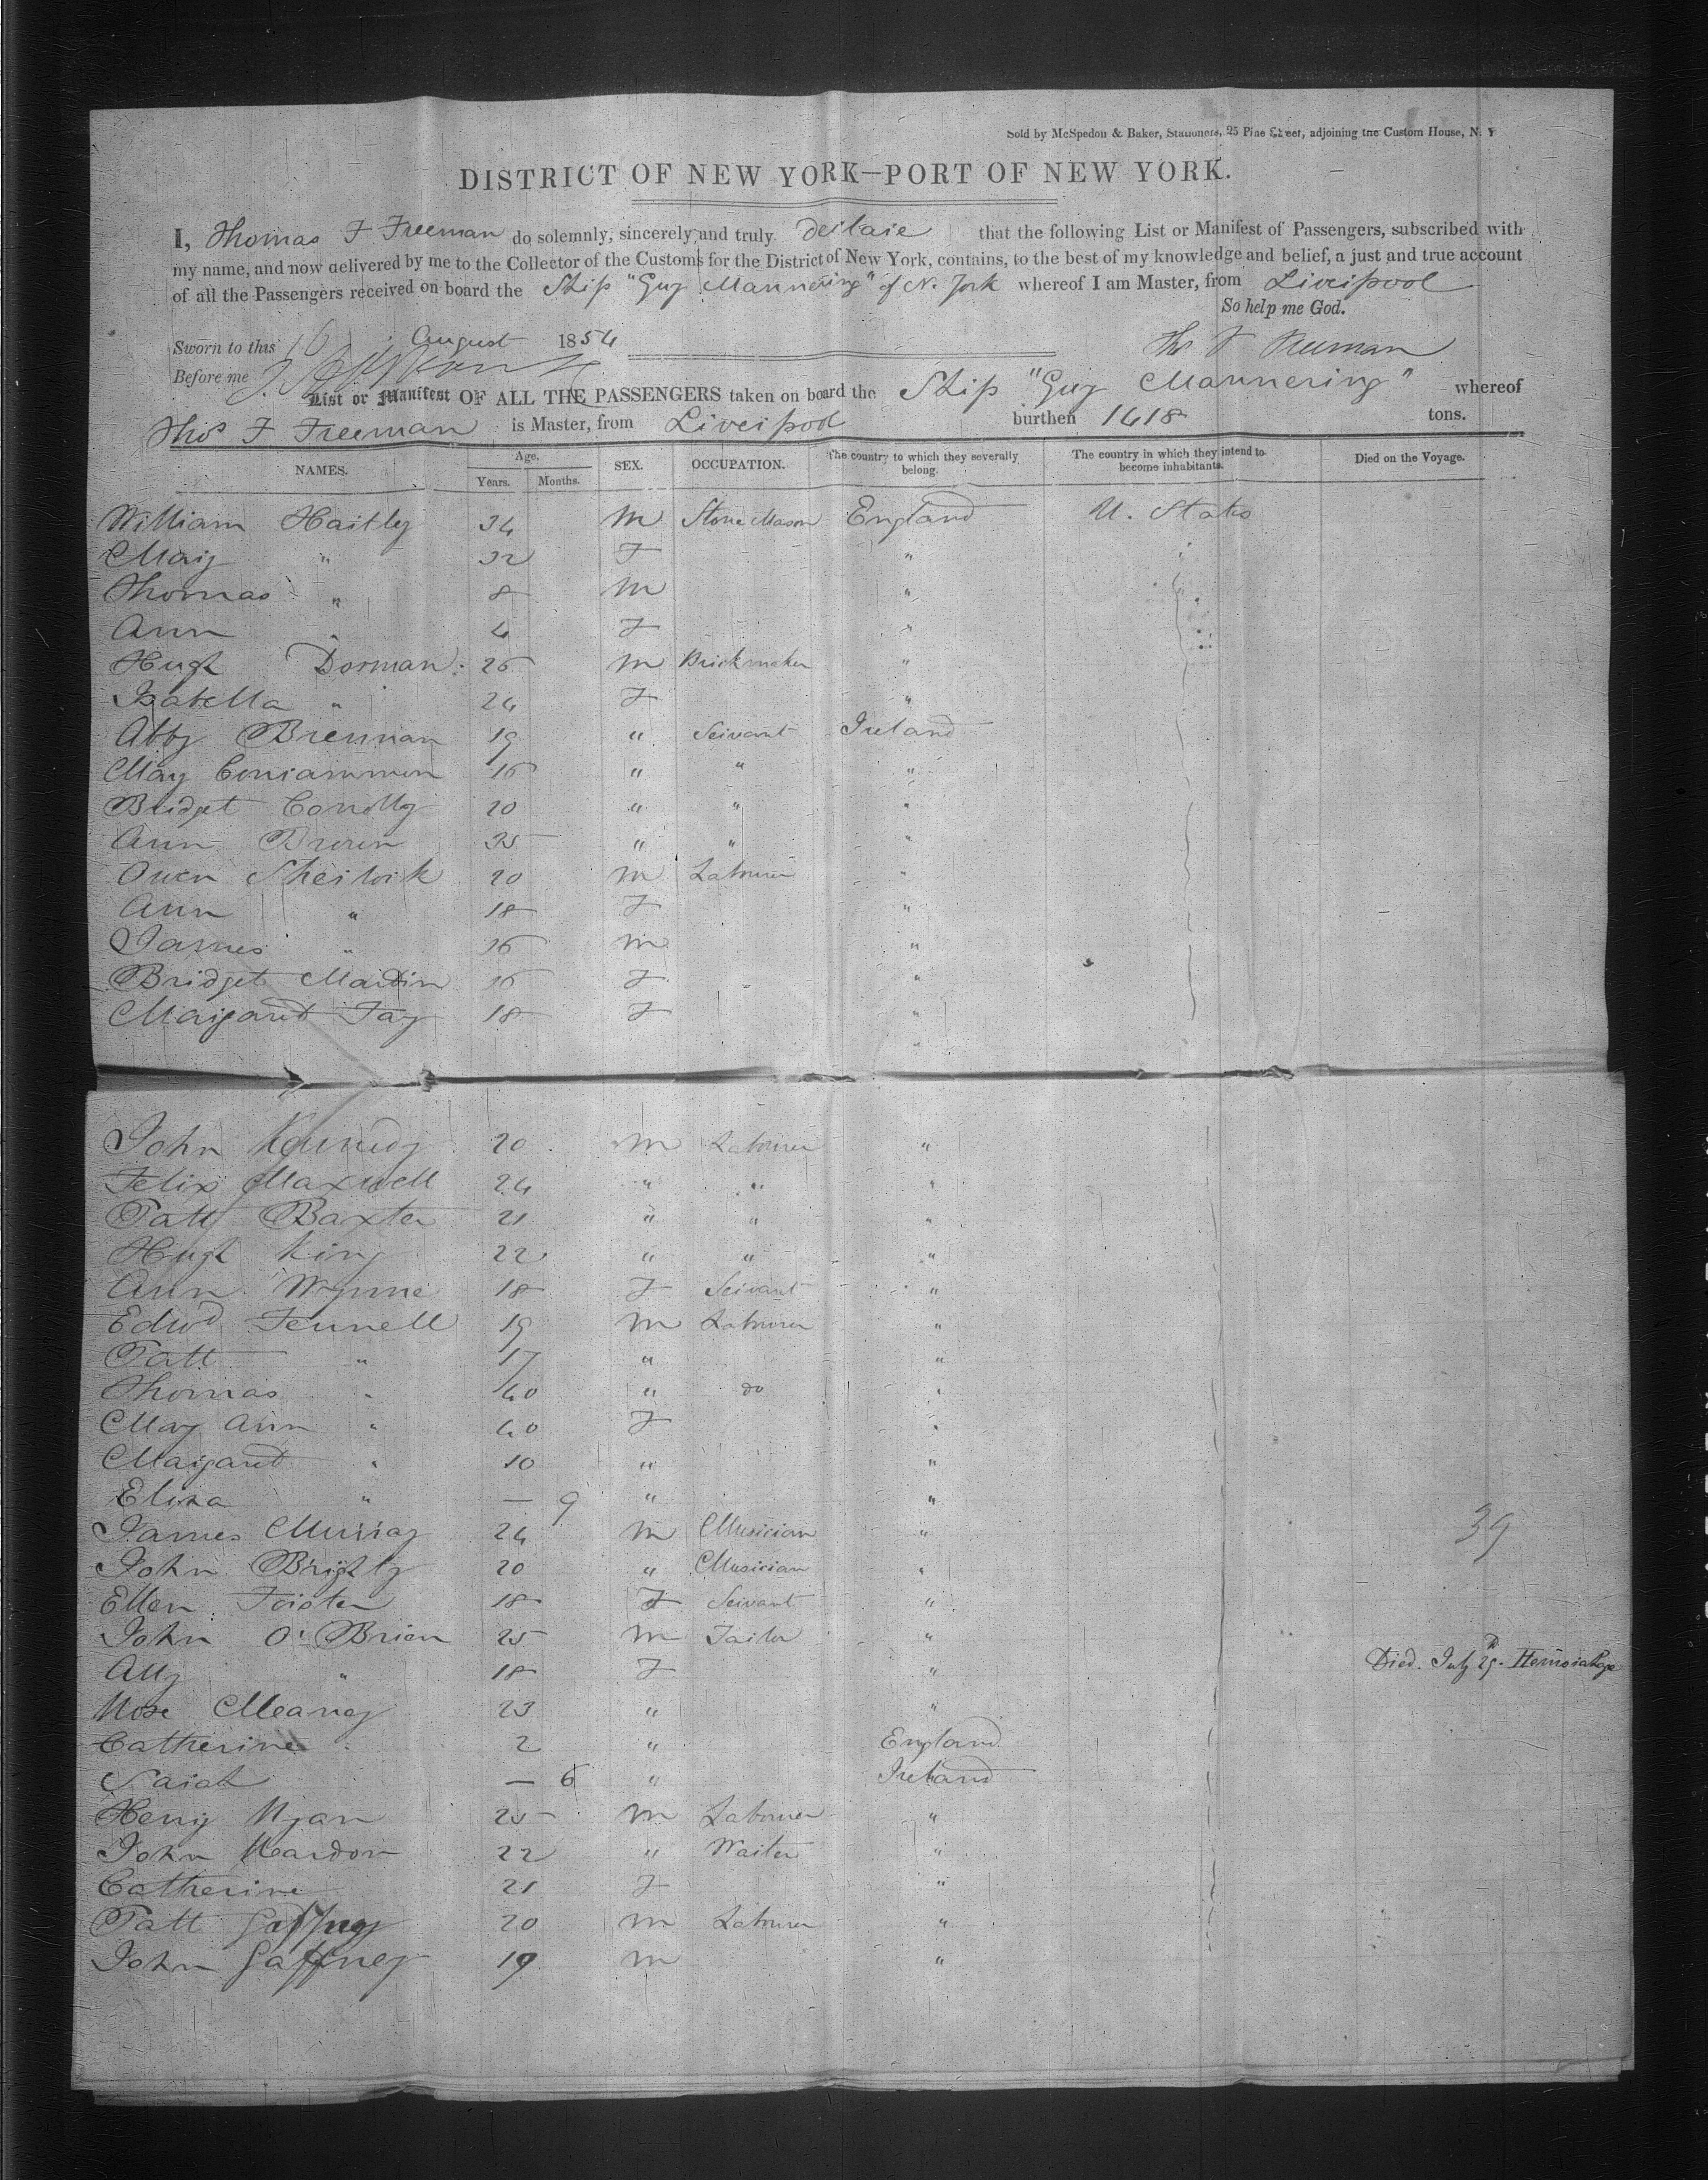 Sold by McSpedon & Baker, Stationers, 25 Pine Street, adjoining the Custom House, N. Y
DISTRICT OF NEW YORK—PORT OF NEW YORK.
I, Thomas F Freeman do solemnly, sincerely and truly declare that the following List or Manifest of Passengers, subscribed with
my name, and now delivered by me to the Collector of the Customs for the District of New York, contains, to the best of my knowledge and belief, a just and true account
of all the Passengers received on board the Ship "Guy Mannering" of N. York whereof I am Master, from Liverpool
So help me God.
Sworn to this 16 August 1854
Thos F Freeman
Before me
List or Manifest OF ALL THE PASSENGERS taken on board the Ship "Guy Mannering" whereof
Thos F Freeman is Master, from Liverpool burthen 1418 tons.
NAMES. Age. Years. Months. SEX. OCCUPATION. The country to which they severally belong. The country in which they intend to become inhabitants. Died on the Voyage.
William Hartley 34 M Stone Mason England U. States
Mary " 32 F "
Thomas " 8 M "
Ann 4 F "
Hugh Dorman 26 M Brickmaker "
Isabella " 24 F "
Abby Brennan 19 " Servant Ireland
Mary 16 " " "
Bridget Conolly 20 " " "
Ann Brown 35 " " "
Owen 20 M Labourer "
Ann " 18 F "
James " 16 M "
Bridget Martin 16 F "
Margaret Fay 18 F "
John Kennedy 20 M Labourer "
Felix Maxwell 24 " " "
Patt Baxter 21 " " "
Hugh King 22 " " "
Ann Wynne 18 F Servant "
Edwd Fennell 19 M Labourer "
Patt " 17 " "
Thomas " 40 " do "
Mary Ann " 40 F "
Margaret " 10 " "
Eliza " — 9 " "
James Murray 24 M Musician " 39
John Brightly 20 " Musician "
Ellen Forster 18 F Servant "
John O'Brien 25 M Tailor "
Ally " 18 F " Died. July 29. Hemorahage
Rose Meaney 23 " "
Catherine 2 " England
Sarah — 6 " Ireland
Henry Ryan 25 M Labourer "
John Reardon 22 " Waiter "
Catherine 21 F "
Patt Gaffney 20 M Labourer "
John Gaffney 19 M "